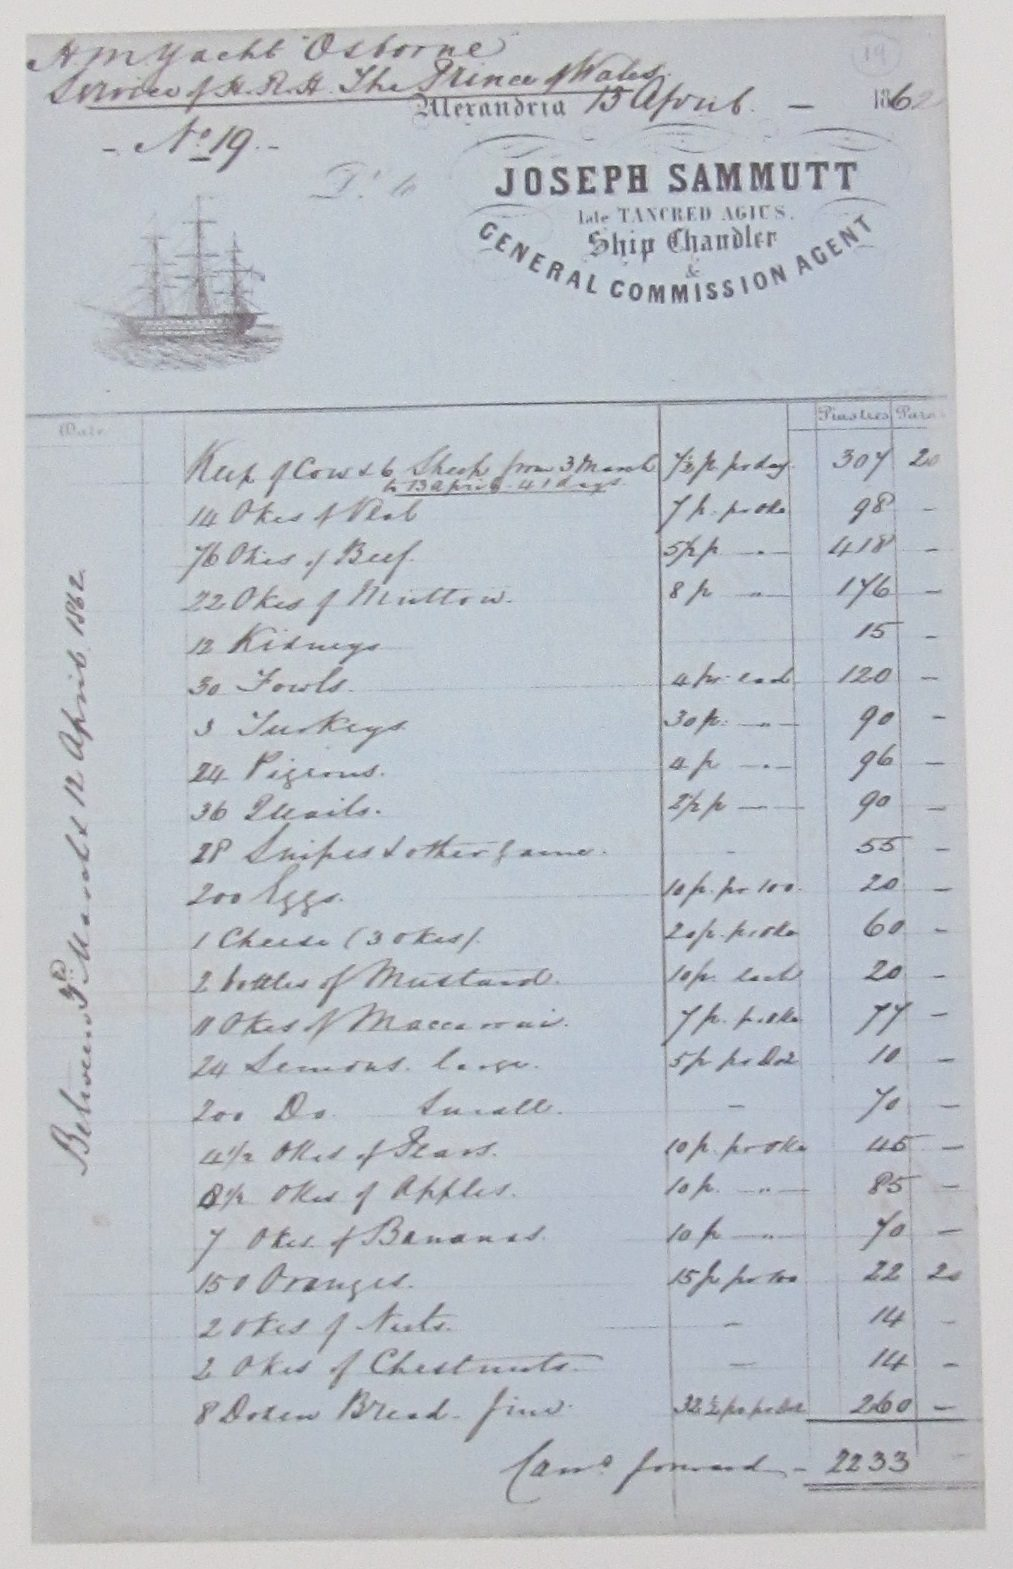 H M Yacht "Osborne"
Service of H.R.H. The Prince of Wales.
19
Alexandria 15 April - 1862
- No 19. -
Dr to
JOSEPH SAMMUTT
late TANCRED AGIUS.
Ship Chandler
&
GENERAL COMMISSION AGENT
Date Piastres Paras
Between 3rd March & 12 April 1862
Keep of Cow & 6 Sheep from 3 March 7½ p pr day 307 20
to 13 April 41 days
14 Okes of Veal 7 p. pr oke 98 -
76 Okes of Beef. 5½ p - " - 418 -
22 Okes of Mutton. 8 p - " - 176 -
12 Kidneys 15 -
30 Fowls. 4 p. each 120 -
3 Turkeys 30 p. - " - 90 -
24 Pigeons. 4 p - " - 96 -
36 Quails. 2½ p - 90 -
28 Snipes & other game. - 55 -
200 Eggs. 10 p. pr 100. 20 -
1 Cheese (3 okes). 20 p. pr oke 60 -
2 bottles of Mustard. 10 p. each 20 -
11 Okes of Maccaroni. 7 p. pr oke 77 -
24 Lemons. large. 5 p pr Doz 10 -
200 Do Small. - 70 -
4½ Okes of Pears. 10 p. pr oke 45 -
8½ Okes of Apples. 10 p. - " - 85 -
7 Okes of Bananas. 10 p - " - 70 -
150 Oranges. 15 p pr 100 22 20
2 Okes of Nuts. - 14 -
2 Okes of Chestnuts. - 14 -
8 Dozen Bread - fine. 32½ p pr Doz 260 -
Carrd forward - 2233 -